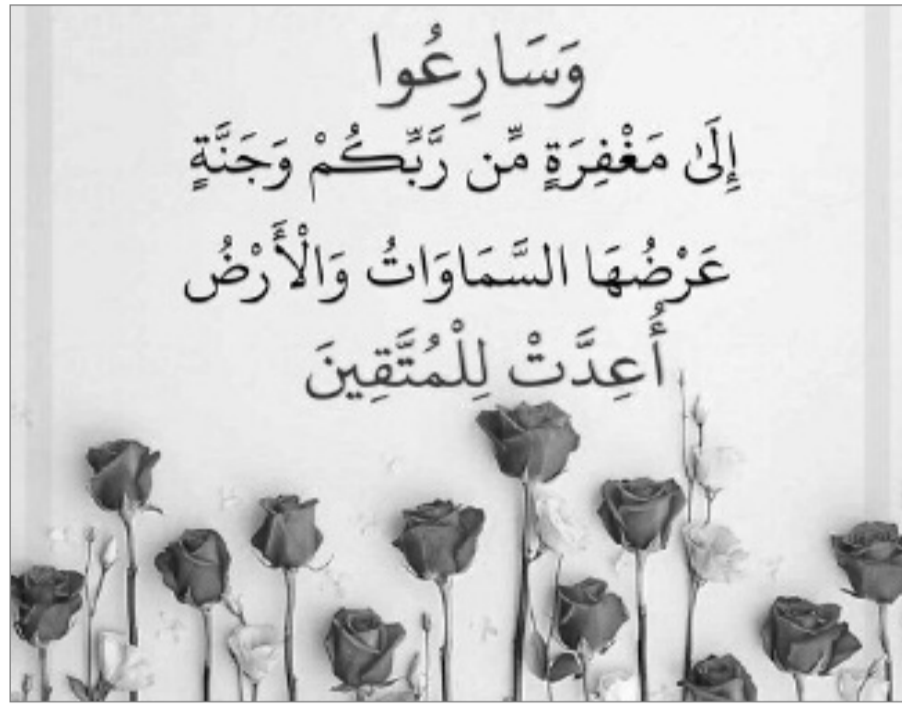 وَسَارِعُوا
إِلَىٰ مَغْفِرَةٍ مِّن رَّبِّكُمْ وَجَنَّةٍ
عَرْضُهَا السَّمَاوَاتُ وَالْأَرْضُ
أُعِدَّتْ لِلْمُتَّقِينَ